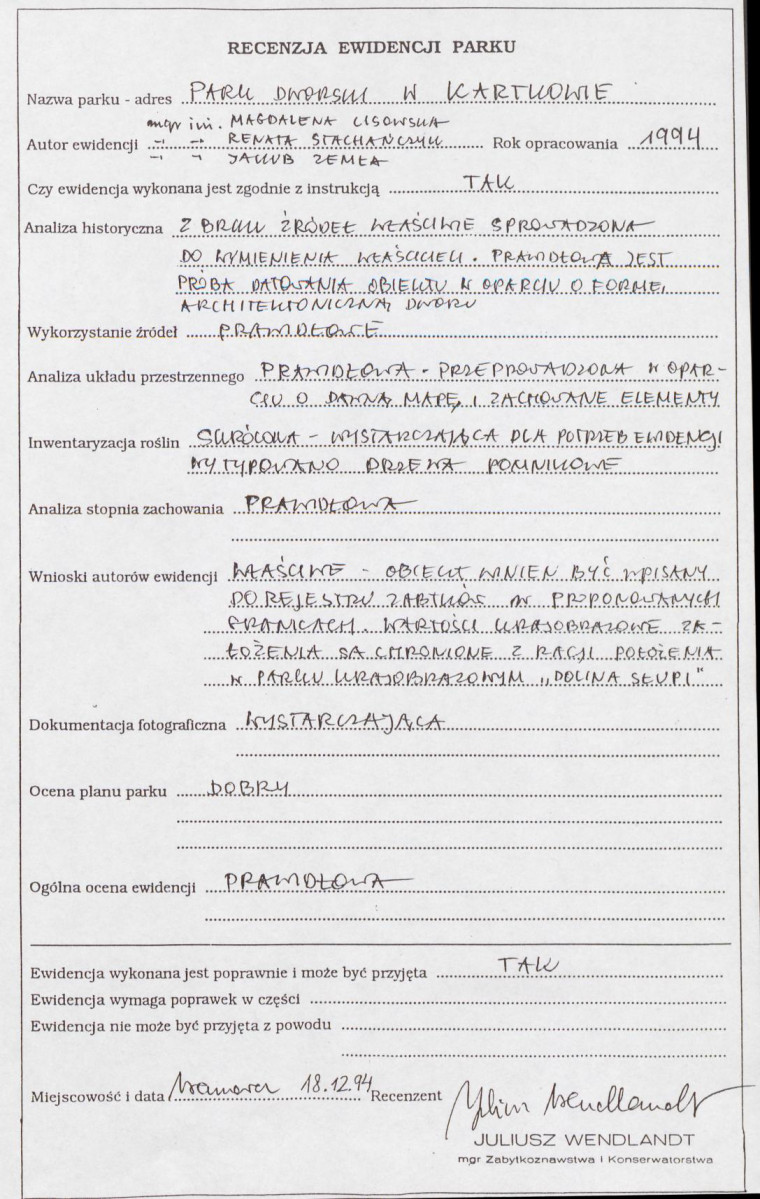 RECENZJA EWIDENCJI PARKU
Nazwa parku - adres PARK DWORSKI W KARTKOWIE
mgr inż. MAGDALENA LISOWSKA
Autor ewidencji -„- -„- RENATA STACHAŃCZYK Rok opracowania 1994
-„- -„- JAKUB ZEMŁA
Czy ewidencja wykonana jest zgodnie z instrukcją TAK
Analiza historyczna Z BRAKU ŹRÓDEŁ WŁAŚCIWIE SPROWADZONA
DO WYMIENIENIA WŁAŚCICIELI. PRAWIDŁOWA JEST
PRÓBA DATOWANIA OBIEKTU W OPARCIU O FORMĘ
ARCHITEKTONICZNĄ DWORU
Wykorzystanie źródeł PRAWIDŁOWE
Analiza układu przestrzennego PRAWIDŁOWA - PRZEPROWADZONA W OPAR-
CIU O DAWNĄ MAPĘ I ZACHOWANE ELEMENTY
Inwentaryzacja roślin SKRÓCONA - WYSTARCZAJĄCA DLA POTRZEB EWIDENCJI
WYTYPOWANO DRZEWA POMNIKOWE
Analiza stopnia zachowania PRAWIDŁOWA
Wnioski autorów ewidencji WŁAŚCIWE - OBIEKT WINIEN BYĆ WPISANY
DO REJESTRU ZABTKÓW W PROPONOWANYCH
GRANICACH. WARTOŚCI KRAJOBRAZOWE ZA-
ŁOŻENIA SĄ CHRONIONE Z RACJI POŁOŻENIA
W PARKU KRAJOBRAZOWYM „DOLINA SŁUPI"
Dokumentacja fotograficzna WYSTARCZAJĄCA
Ocena planu parku DOBRY
Ogólna ocena ewidencji PRAWIDŁOWA
Ewidencja wykonana jest poprawnie i może być przyjęta TAK
Ewidencja wymaga poprawek w części
Ewidencja nie może być przyjęta z powodu
Miejscowość i data 18.12.94 Recenzent Juliusz Wendlandt
JULIUSZ WENDLANDT
mgr Zabytkoznawstwa i Konserwatorstwa